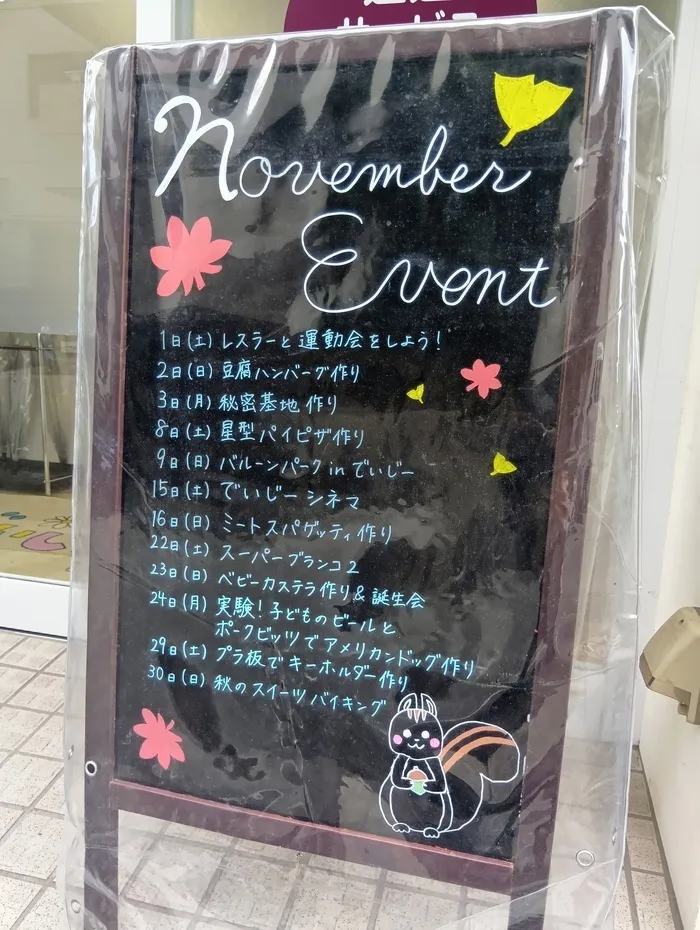 November
Event
1日(土) レスラーと運動会をしよう!
2日(日) 豆腐ハンバーグ作り
3日(月) 秘密基地作り
8日(土) 星型パイピザ作り
9日(日) バルーンパーク in でいじー
15日(土) でいじーシネマ
16日(日) ミートスパゲッティ作り
22日(土) スーパーブランコ2
23日(日) ベビーカステラ作り&誕生会
24日(月) 実験!子どものビールと
ポークビッツでアメリカンドッグ作り
29日(土) プラ板でキーホルダー作り
30日(日) 秋のスイーツバイキング